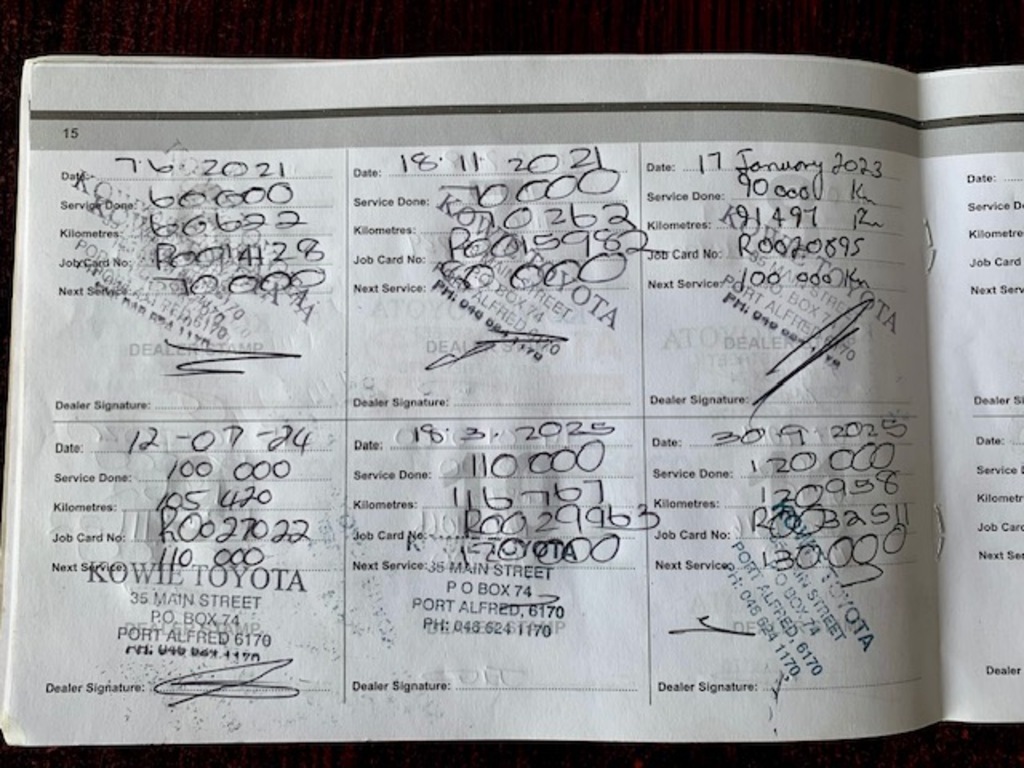 15
Date: 7.6.2021
Service Done: 60000
Kilometres: 60622
Job Card No: R0014128
Next Service: 70000
DEALER STAMP
Dealer Signature:
Date: 18.11.2021
Service Done: 70000
Kilometres: 70262
Job Card No: R0015982
Next Service: 80000
KOWIE TOYOTA
35 MAIN STREET
P O BOX 74
PORT ALFRED, 6170
PH: 046 624 1170
Dealer Signature:
Date: 17 January 2023
Service Done: 90 000 Km
Kilometres: 91497 Km
Job Card No: R0020895
Next Service: 100 000 Km
KOWIE TOYOTA
35 MAIN STREET
P O BOX 74
PORT ALFRED, 6170
PH: 046 624 1170
Dealer Signature:
Date: 12-07-24
Service Done: 100 000
Kilometres: 105 420
Job Card No: R0027022
Next Service: 110 000
KOWIE TOYOTA
35 MAIN STREET
P.O. BOX 74
PORT ALFRED 6170
PH: 046 624 1170
Dealer Signature:
Date: 18.3.2025
Service Done: 110 000
Kilometres: 116 767
Job Card No: R0029963
Next Service: 120 000
TOYOTA
35 MAIN STREET
P O BOX 74
PORT ALFRED, 6170
PH: 046 624 1170
Dealer Signature:
Date: 30.9.2025
Service Done: 120 000
Kilometres: 120958
Job Card No: R0032511
Next Service: 130.000
KOWIE TOYOTA
35 MAIN STREET
P O BOX 74
PORT ALFRED, 6170
PH: 046 624 1170
Dealer Signature:
Date:
Service D
Kilometre
Job Card
Next Serv
Dealer S
Date:
Service
Kilometr
Job Card
Next Se
Dealer